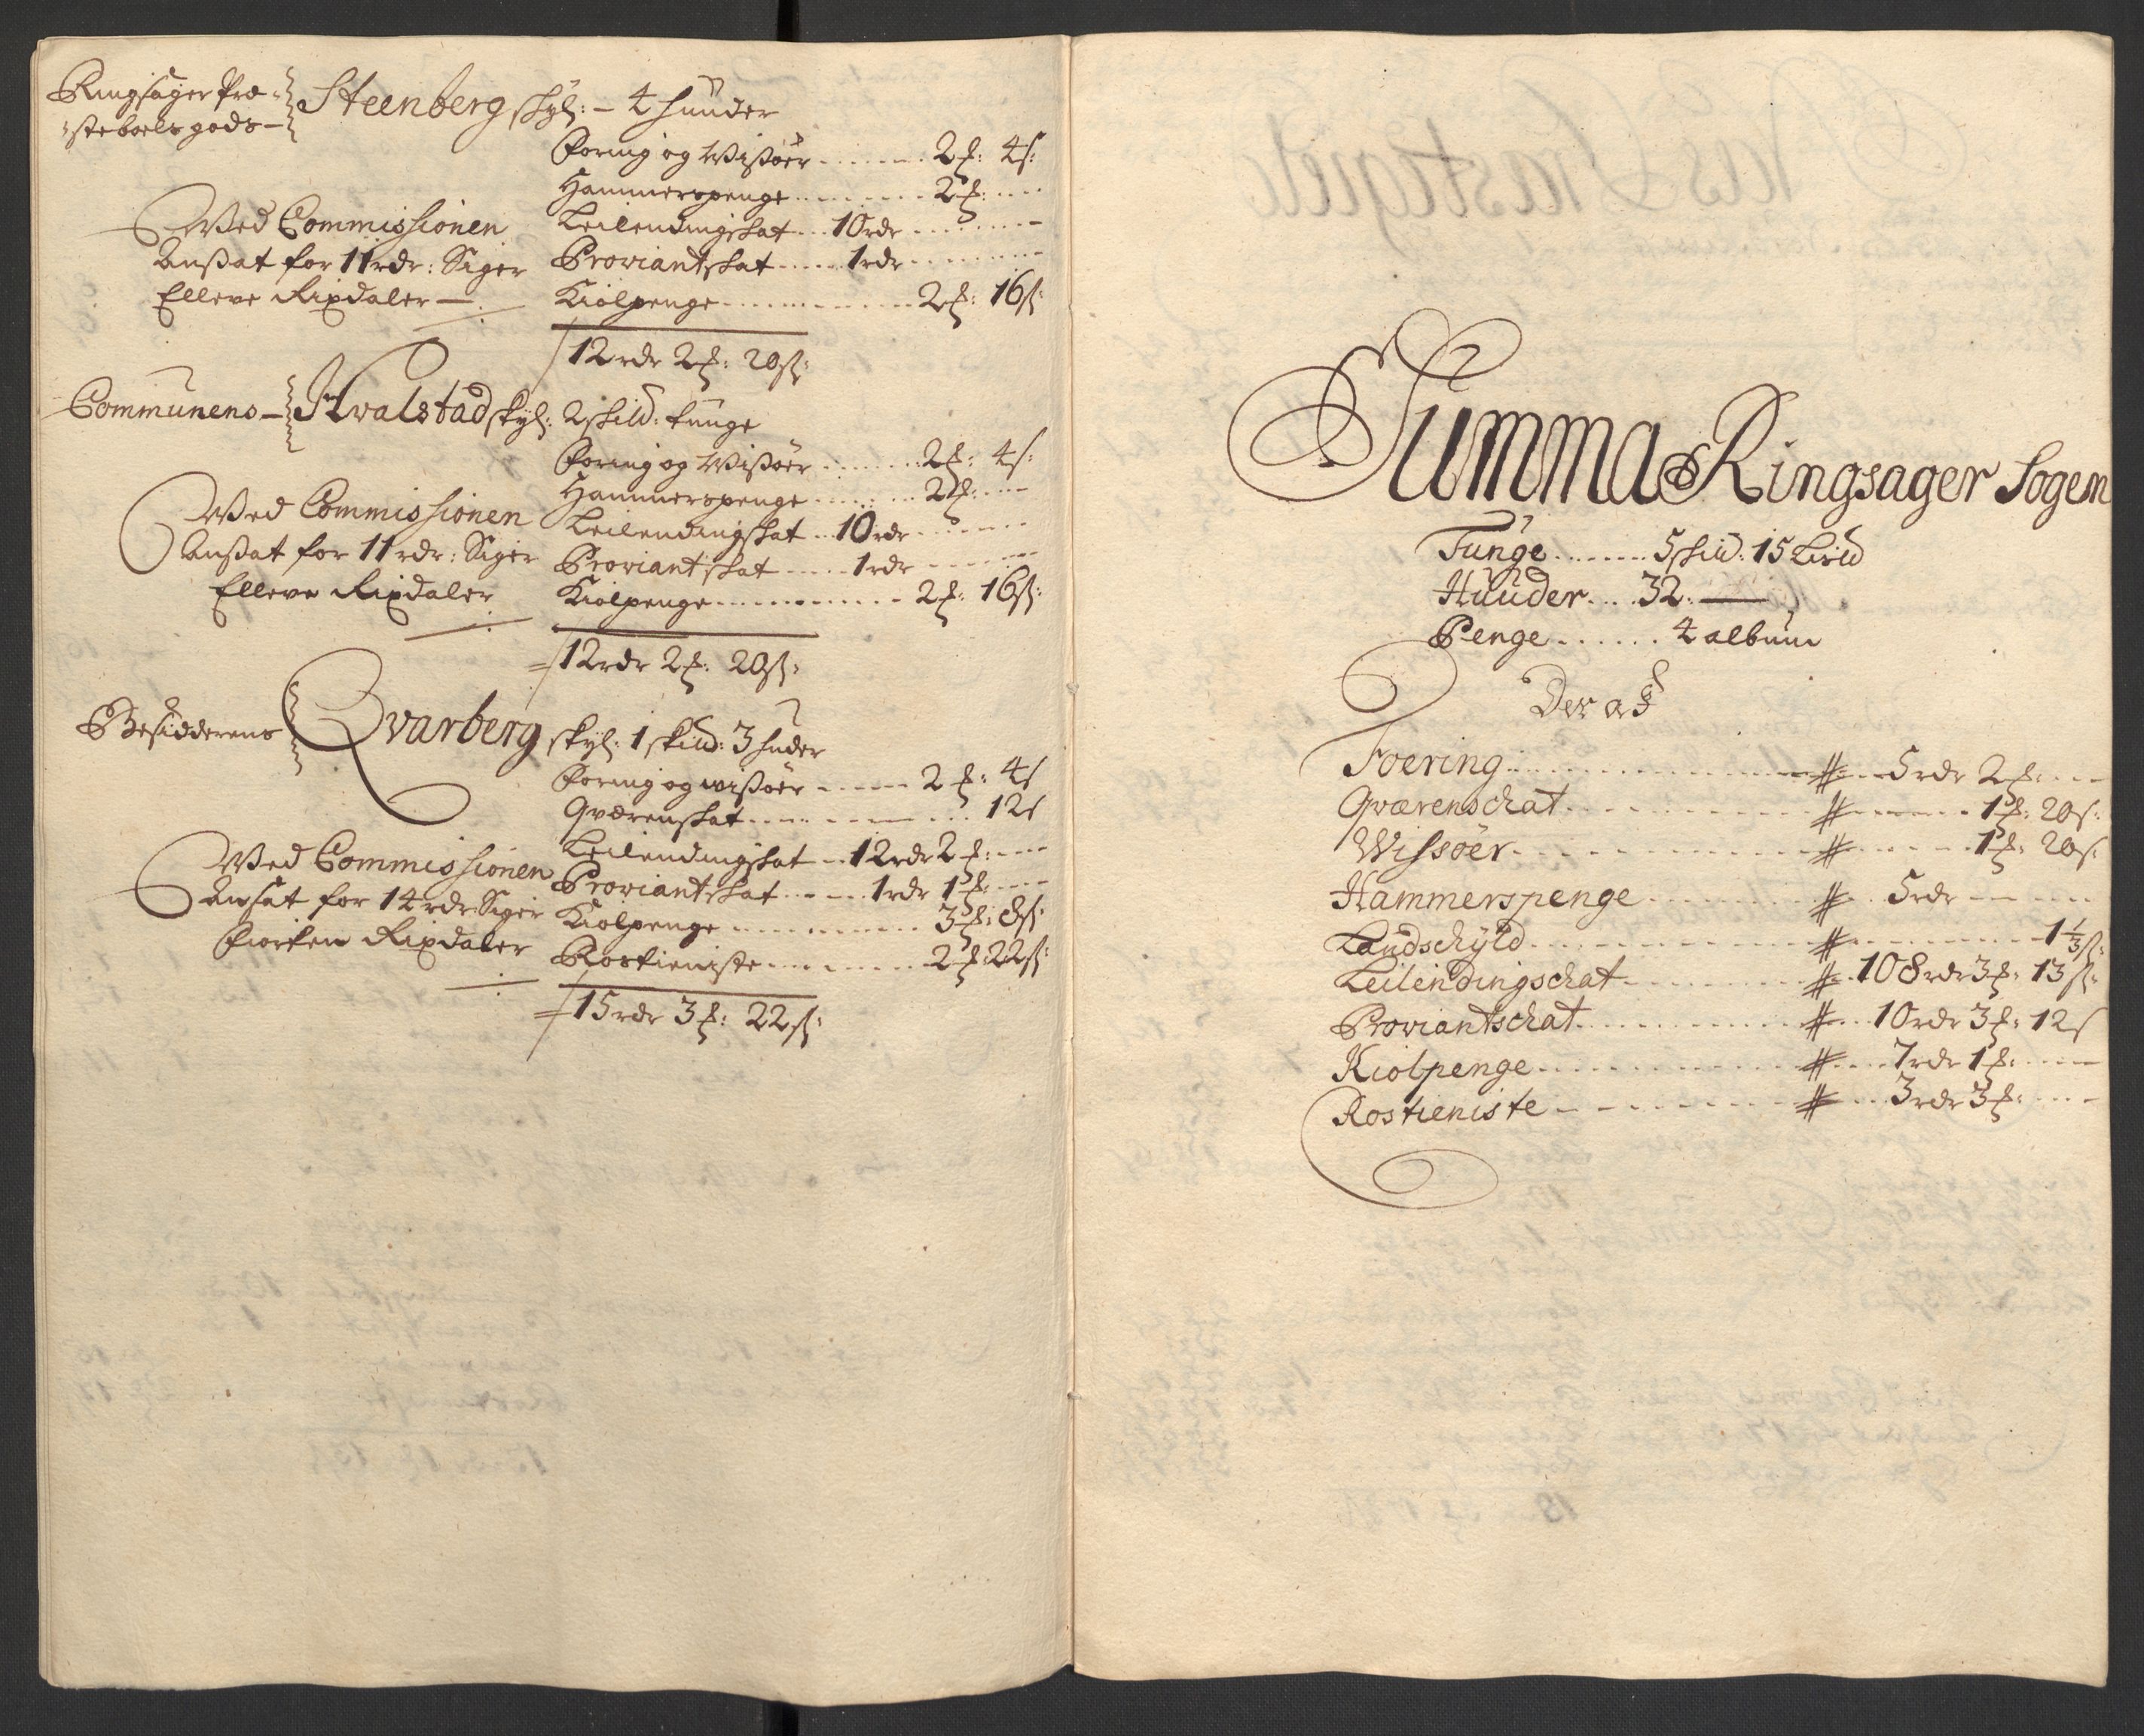 Ringsager Præ-
stebolsgods
Steenberg skyl: – 4 huuder
Foring og Wißöer 2 ℔: 4 s:
Hammerspenge 2 ℔:
Leilendingskat 10 rdr
Proviantskat 1 rdr
Kiolpenge 2 ℔: 16 ß:
Wed Commissionen
Anßat for 11 rdr: Siger
Elleve Rixdaler
12 rdr 2 ℔: 20 ß:
Communens – Hvalstad skyl: 2 skild: tunge
Foring og Wißöer 2 ℔: 4 s:
Hammerspenge 2 ℔:
Leilendingskat 10 rdr
Proviantskat 1 rdr
Kiolpenge 2 ℔: 16 ß:
Wed Commissionen
Anßat for 11 rdr: Siger
Elleve Rixdaler
12 rdr 2 ℔: 20 ß:
Besidderens
Qvarberg skyl: 1 skild: 3 huder
Foring og wißöer 2 ℔: 4 s
Qværnskat 12 s
Leilendingskat 12 rdr 2 ℔:
Proviantskat 1 rdr 1 ℔:
Kiolpenge 3 ℔: 8 ß:
Rostieniste 2 ℔: 22 ß:
Wed Commissionen
Ansat for 14 rdr Siger
Fiorten Rixdaler
15 rdr 3 ℔: 22 ß:
Summa Ringsager Sogen
Tunge 5 skild: 15 Lisld
Huuder 32
Penge 4 album
Der af
Foering 5 rdr 2 ℔:
Qværenschat 1 ℔: 20 s:
Wissöer 1 ℔: 20 s
Hammerspenge 5 rdr
Landschyld 1 1/3 ß:
Leilendingschat 108 rdr 3 ℔: 13 ß:
Proviantschat 10 rdr 3 ℔: 12 s
Kiolpenge 7 rdr 1 ℔:
Rostieniste 3 rdr 3 ℔: